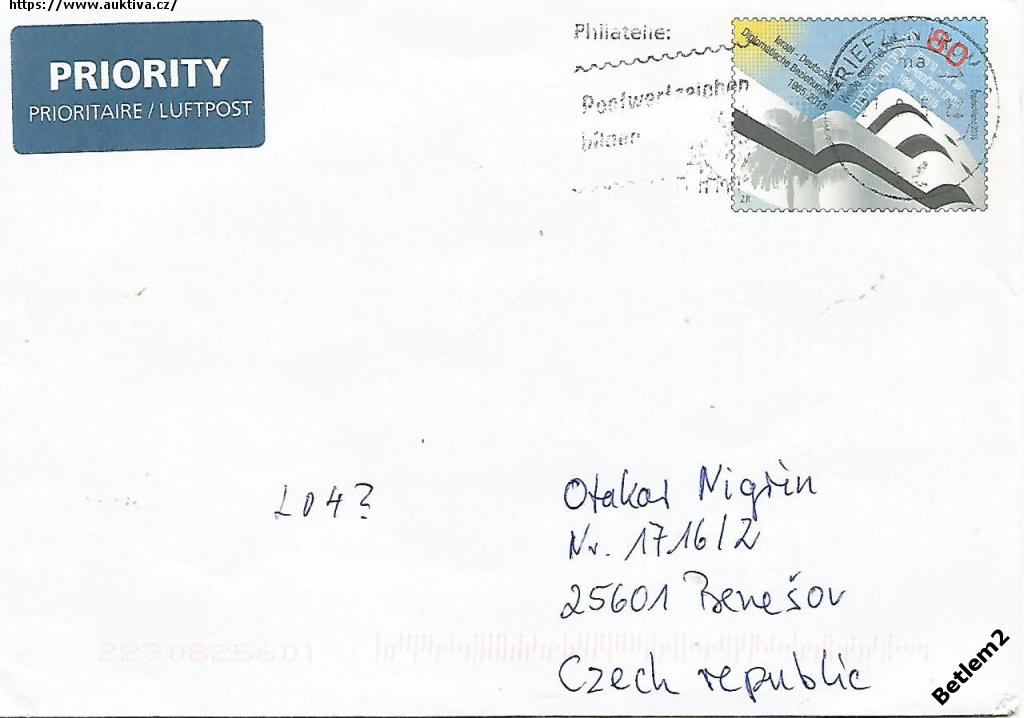 https://www.auktiva.cz/
PRIORITY
PRIORITAIRE / LUFTPOST
Philatelie:
Postwertzeichen
bilden
Israel – Deutschland
Diplomatische Beziehungen
1965-2015
80
BRIEF
ZR
LO4?
Otakar Nigrin
Nr. 1716/2
25601 Benešov
Czech republic
2230825601
Betlem2